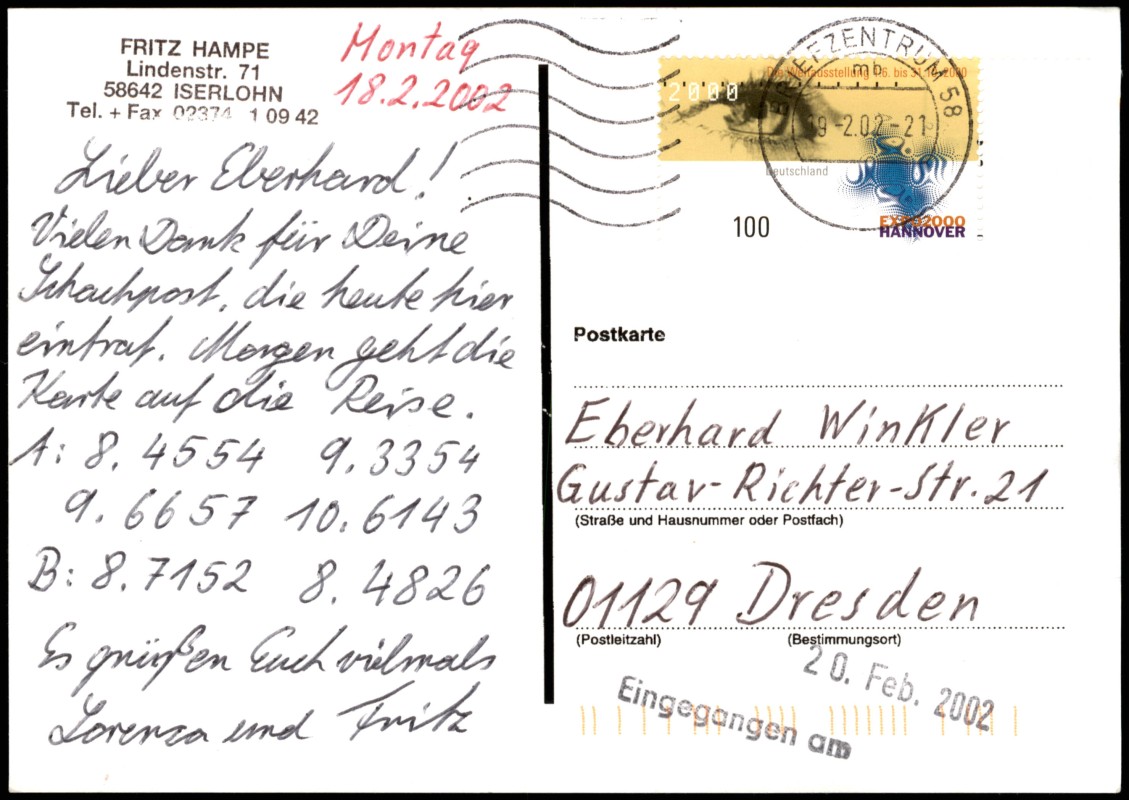 FRITZ HAMPE
Lindenstr. 71
58642 ISERLOHN
Tel. + Fax 02374 1 09 42
Montag
18.2.2002
Lieber Eberhard!
Vielen Dank für Deine
Schachpost, die heute hier
eintraf. Morgen geht die
Karte auf die Reise.
A: 8. 4554 9. 3354
9. 6657 10. 6143
B: 8. 7152 8. 4826
Es grüßen Euch vielmals
Lorenza und Fritz
Die Weltausstellung 1.6. bis 31.10.2000
2000
Deutschland
100
EXPO2000
HANNOVER
BRIEFZENTRUM 58
mb
19-2.02-21
Postkarte
Eberhard Winkler
Gustav-Richter-Str. 21
(Straße und Hausnummer oder Postfach)
01129 Dresden
(Postleitzahl) (Bestimmungsort)
20. Feb. 2002
Eingegangen am